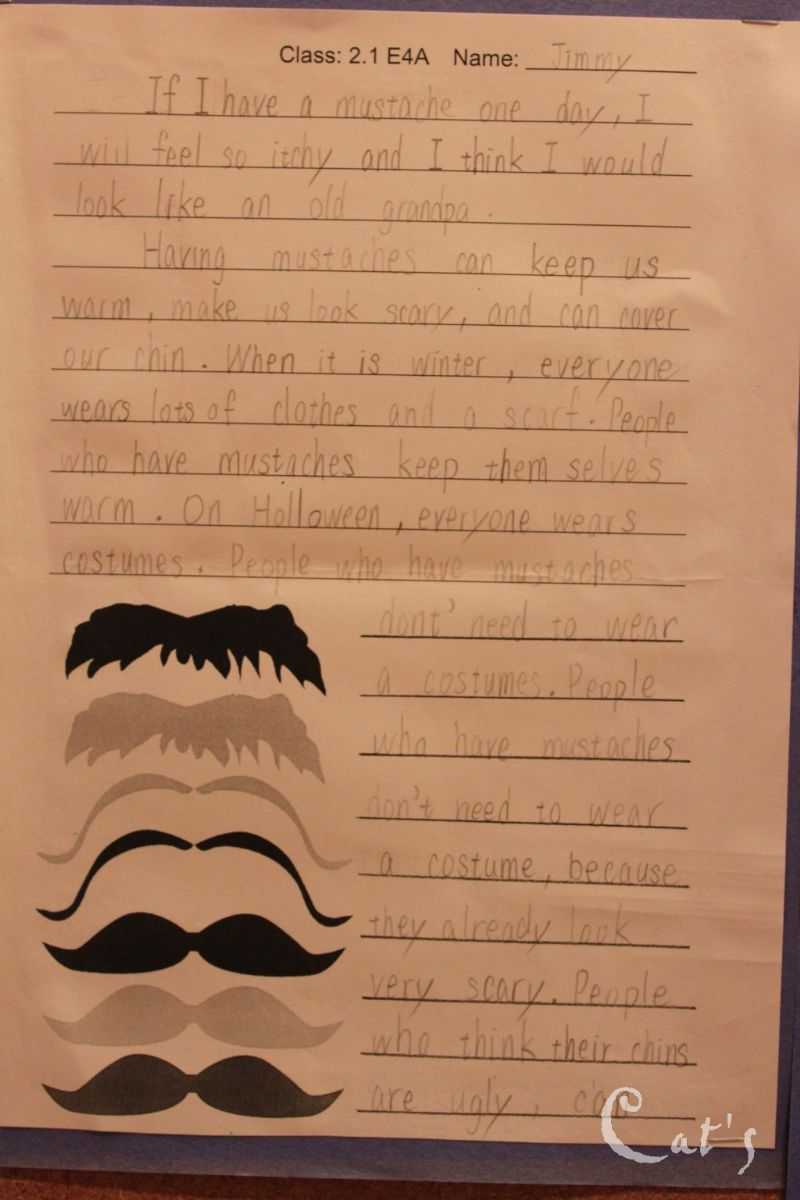 Class: 2.1 E4A Name: Jimmy
If I have a mustache one day, I
will feel so itchy and I think I would
look like an old grandpa.
Having mustaches can keep us
warm, make us look scary, and can cover
our chin. When it is winter, everyone
wears lots of clothes and a scarf. People
who have mustaches keep them selves
warm. On Holloween, everyone wears
costumes. People who have mustaches
dont' need to wear
a costumes. People
who have mustaches
don't need to wear
a costume, because
they already look
very scary. People
who think their chins
are ugly, can
Cat's